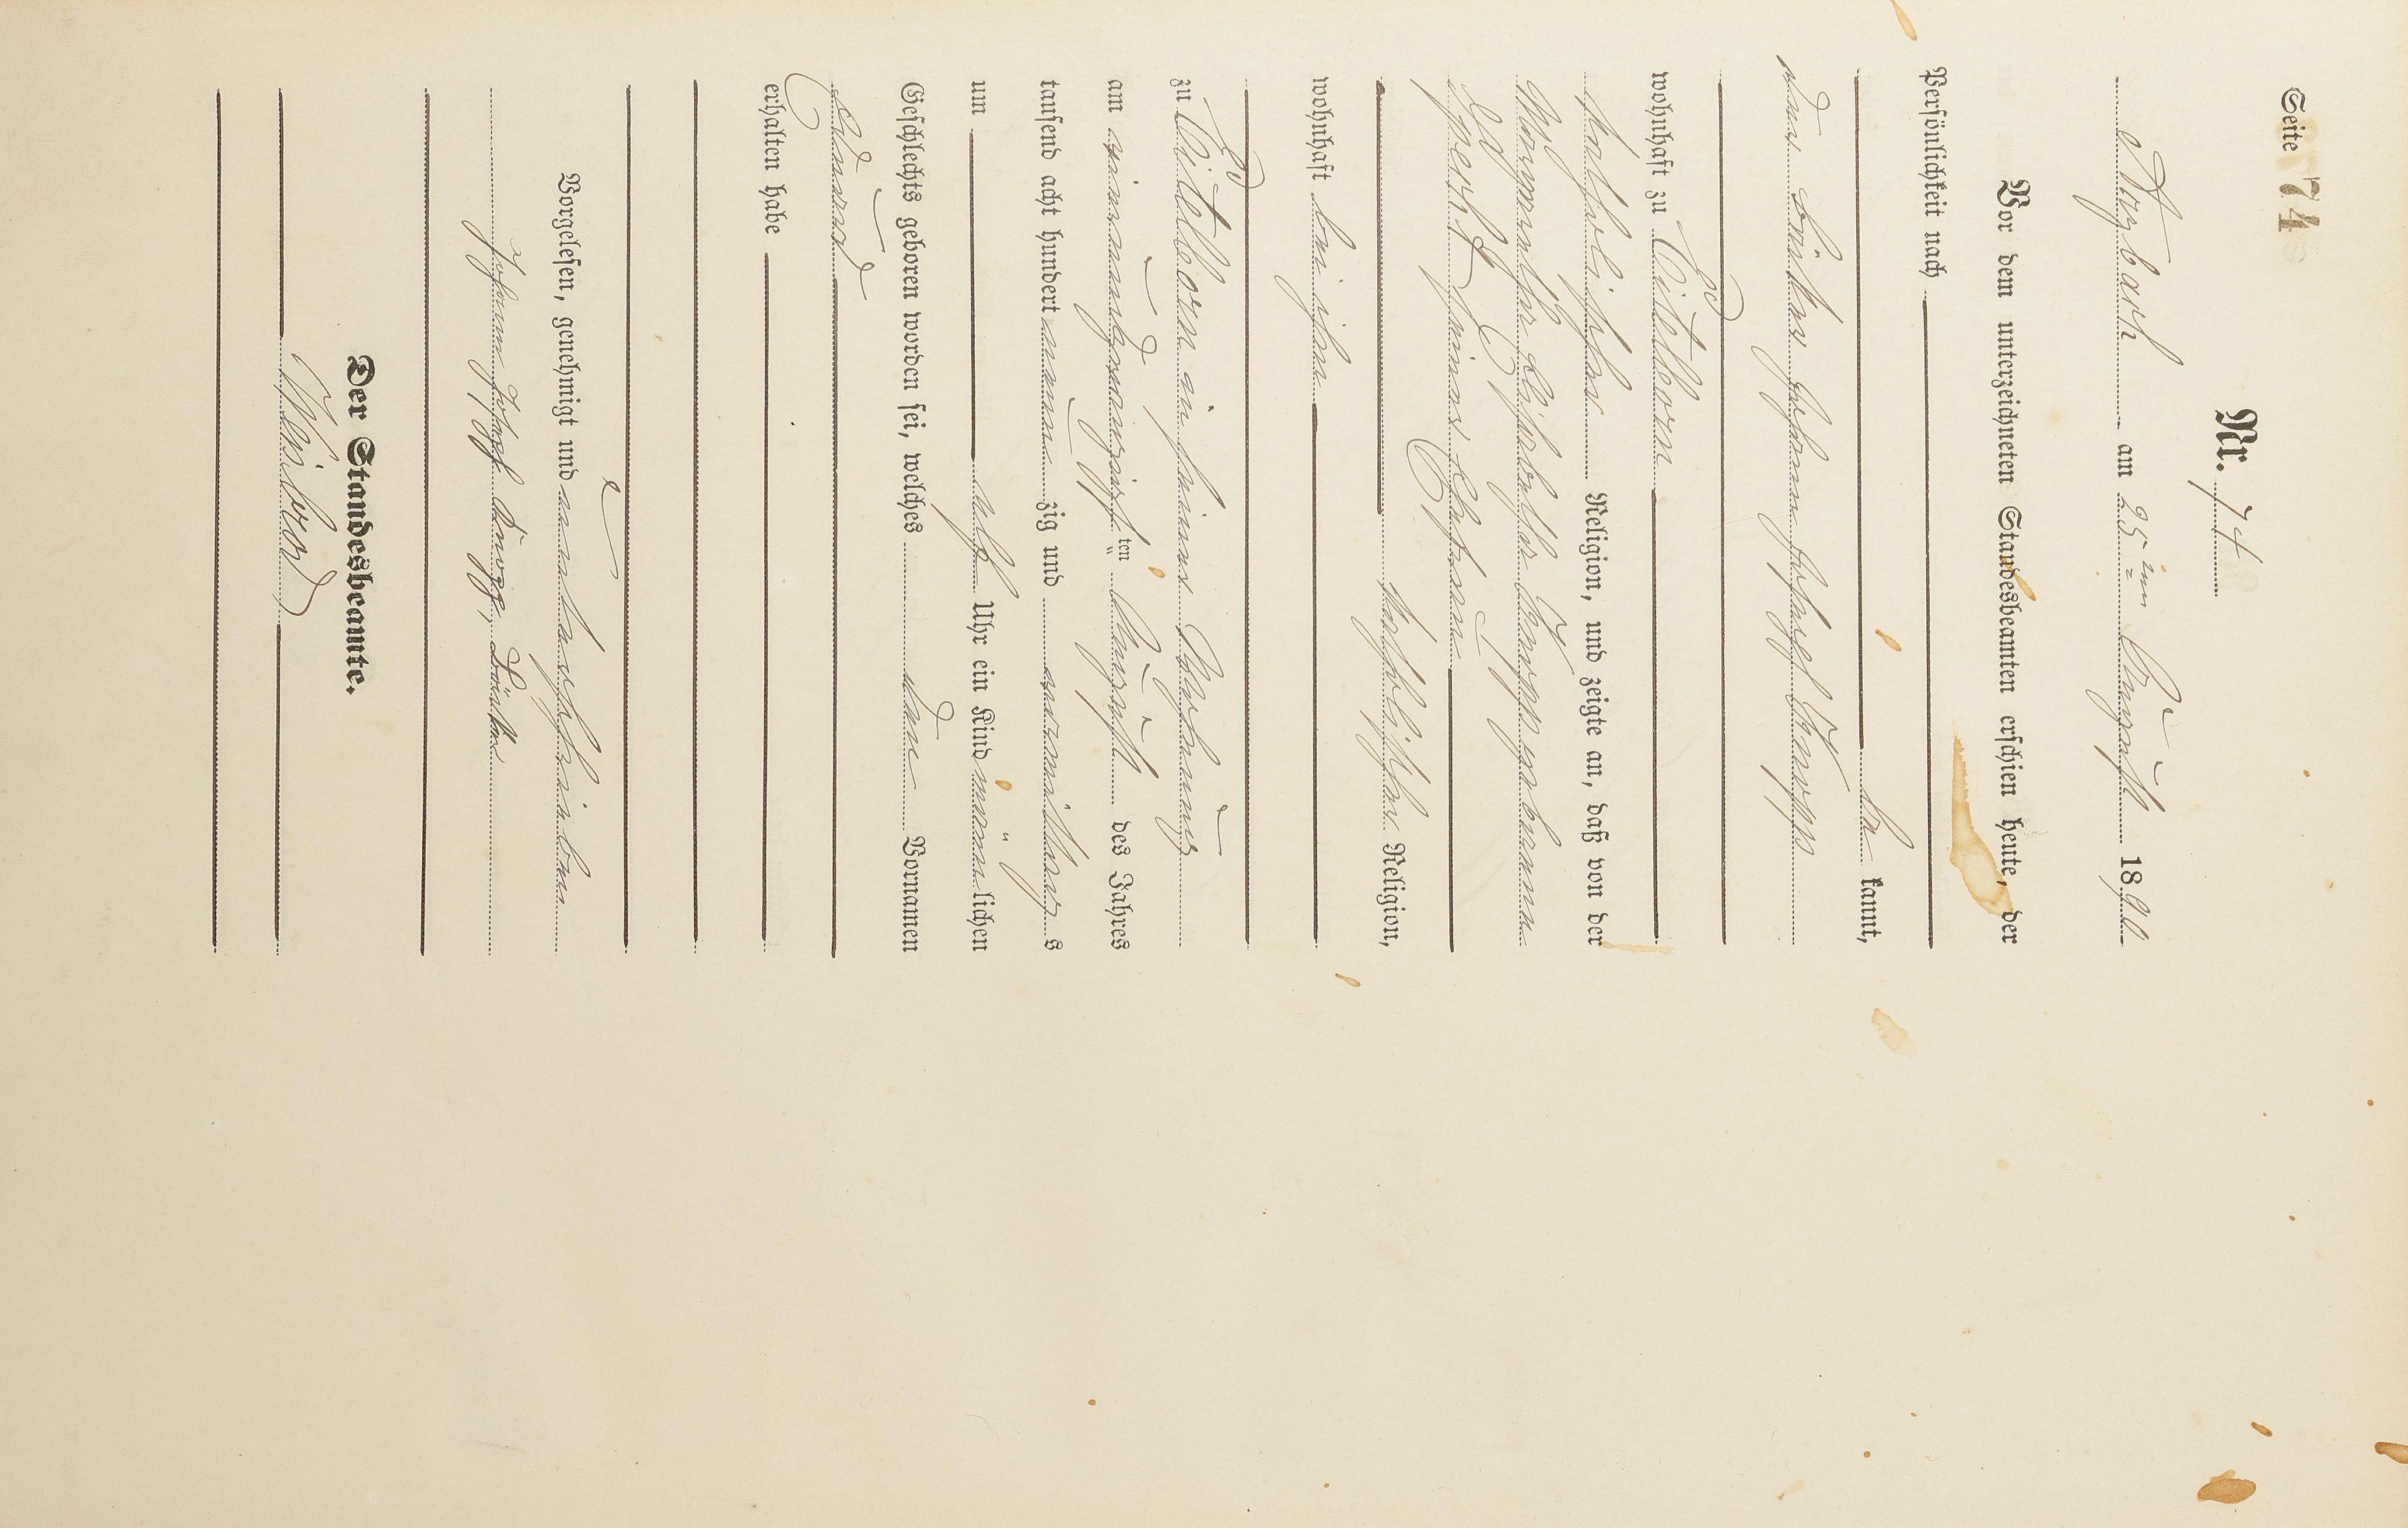 Seite 74
Nr. 74
Arzbach am 25ten August 1890
Vor dem unterzeichneten Standesbeamten erschien heute, der
Persönlichkeit nach
be kannt,
der Bäcker Johann Joseph Knopp
wohnhaft zu Eitelborn
katholischer Religion, und zeigte an, daß von der
Elisabetha Knopp geborenen
seiner Ehefrau
katholischer Religion,
wohnhaft bei ihm
zu Eitelborn in seiner Wohnung
am einundzwanzigsten August des Jahres
tausend acht hundert neun zig und vormittags
um elf Uhr ein Kind männlichen
Geschlechts geboren worden sei, welches den Vornamen
Eduard
erhalten habe
Vorgelesen, genehmigt und unterschrieben
Johann Joseph Knopp, Bäcker
Der Standesbeamte.